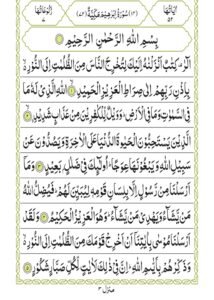 اٰيَاتُهَا ۵۲ (۱۴) سُوْرَةُ اِبْرٰهِيْمَ مَكِّيَّةٌ (۷۲) رُكُوْعَاتُهَا ۷
بِسْمِ اللّٰهِ الرَّحْمٰنِ الرَّحِيْمِ
الٓرٰ كِتٰبٌ اَنْزَلْنٰهُ اِلَيْكَ لِتُخْرِجَ النَّاسَ مِنَ الظُّلُمٰتِ اِلَى النُّوْرِ
بِاِذْنِ رَبِّهِمْ اِلٰى صِرَاطِ الْعَزِيْزِ الْحَمِيْدِ ۝ اللّٰهِ الَّذِيْ لَهٗ مَا
فِي السَّمٰوٰتِ وَمَا فِي الْاَرْضِ وَوَيْلٌ لِّلْكٰفِرِيْنَ مِنْ عَذَابٍ شَدِيْدِ ۝
الَّذِيْنَ يَسْتَحِبُّوْنَ الْحَيٰوةَ الدُّنْيَا عَلَى الْاٰخِرَةِ وَيَصُدُّوْنَ عَنْ
سَبِيْلِ اللّٰهِ وَيَبْغُوْنَهَا عِوَجًا اُولٰٓئِكَ فِيْ ضَلٰلٍۭ بَعِيْدٍ ۝ وَمَآ
اَرْسَلْنَا مِنْ رَّسُوْلٍ اِلَّا بِلِسَانِ قَوْمِهٖ لِيُبَيِّنَ لَهُمْ فَيُضِلُّ اللّٰهُ
مَنْ يَّشَآءُ وَيَهْدِيْ مَنْ يَّشَآءُ وَهُوَ الْعَزِيْزُ الْحَكِيْمُ ۝ وَلَقَدْ
اَرْسَلْنَا مُوْسٰى بِاٰيٰتِنَآ اَنْ اَخْرِجْ قَوْمَكَ مِنَ الظُّلُمٰتِ اِلَى النُّوْرِ
وَذَكِّرْهُمْ بِاَيّٰىمِ اللّٰهِ اِنَّ فِيْ ذٰلِكَ لَاٰيٰتٍ لِّكُلِّ صَبَّارٍ شَكُوْرٍ ۝
منزل ۳